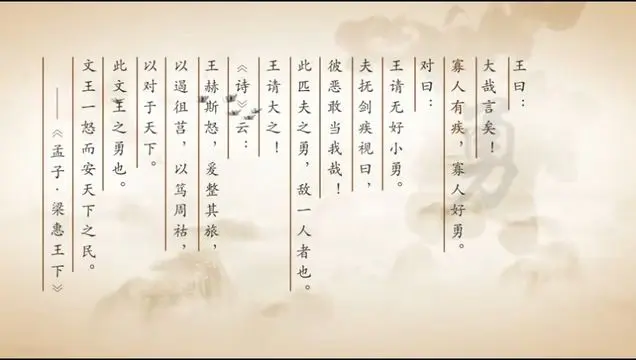 王曰：
大哉言矣！
寡人有疾，寡人好勇。
对曰：
王请无好小勇。
夫抚剑疾视曰，
彼恶敢当我哉！
此匹夫之勇，敌一人者也。
王请大之！
《诗》云：
王赫斯怒，爰整其旅，
以遏徂莒，以笃周祜，
以对于天下。
此文王之勇也。
文王一怒而安天下之民。
——《孟子·梁惠王下》
勇